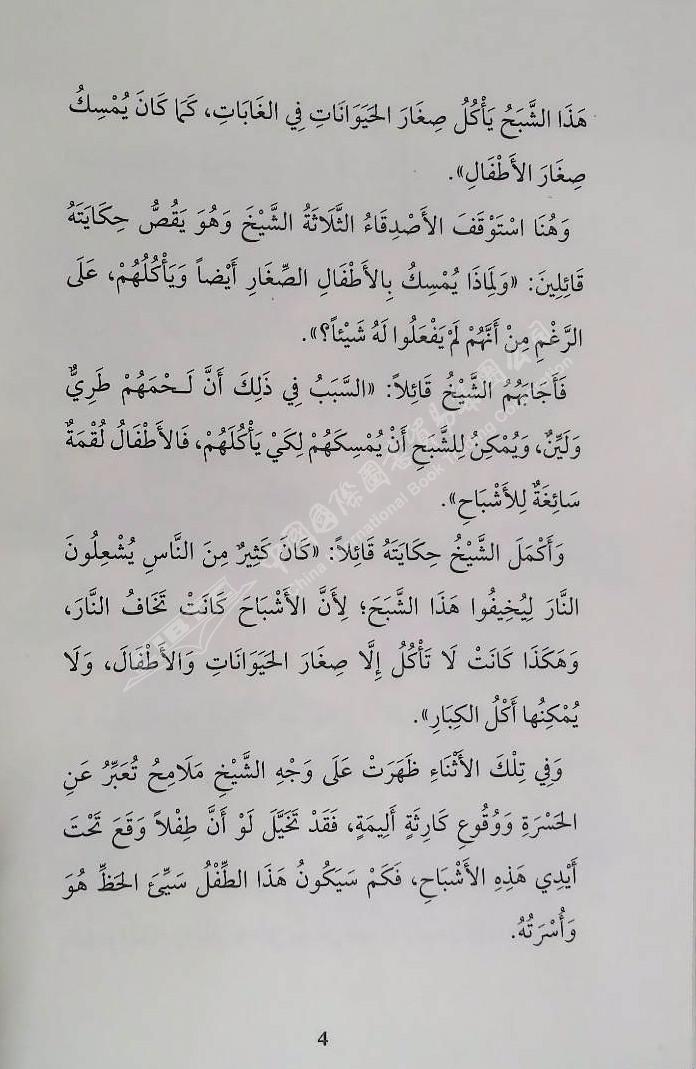 هَذَا الشَّبَحُ يَأْكُلُ صِغَارَ الحَيَوَانَاتِ فِي الغَابَاتِ، كَمَا كَانَ يُمْسِكُ
صِغَارَ الأَطْفَالِ».
وَهُنَا اسْتَوْقَفَ الأَصْدِقَاءُ الثَّلَاثَةُ الشَّيْخَ وَهُوَ يَقُصُّ حِكَايَتَهُ
قَائِلِينَ: «وَلِمَاذَا يُمْسِكُ بِالأَطْفَالِ الصِّغَارِ أَيْضاً وَيَأْكُلُهُمْ، عَلَى
الرَّغْمِ مِنْ أَنَّهُمْ لَمْ يَفْعَلُوا لَهُ شَيْئاً؟».
فَأَجَابَهُمُ الشَّيْخُ قَائِلاً: «السَّبَبُ فِي ذَلِكَ أَنَّ لَـحْمَهُمْ طَرِيٌّ
وَلَيِّنٌ، وَيُمْكِنُ لِلشَّبَحِ أَنْ يُمْسِكَهُمْ لِكَيْ يَأْكُلَهُمْ، فَالأَطْفَالُ لُقْمَةٌ
سَائِغَةٌ لِلأَشْبَاحِ».
وَأَكْمَلَ الشَّيْخُ حِكَايَتَهُ قَائِلاً: «كَانَ كَثِيرٌ مِنَ النَّاسِ يُشْعِلُونَ
النَّارَ لِيُخِيفُوا هَذَا الشَّبَحَ؛ لِأَنَّ الأَشْبَاحَ كَانَتْ تَخَافُ النَّارَ،
وَهَكَذَا كَانَتْ لَا تَأْكُلُ إِلَّا صِغَارَ الحَيَوَانَاتِ وَالأَطْفَالَ، وَلَا
يُمْكِنُها أَكْلُ الكِبَارِ».
وَفِي تِلْكَ الأَثْنَاءِ ظَهَرَتْ عَلَى وَجْهِ الشَّيْخِ مَلَامِحُ تُعَبِّرُ عَنِ
الحَسْرَةِ وَوُقُوعِ كَارِثَةٍ أَلِيمَةٍ، فَقَدْ تَخَيَّلَ لَوْ أَنَّ طِفْلاً وَقَعَ تَحْتَ
أَيْدِي هَذِهِ الأَشْبَاحِ، فَكَمْ سَيَكُونُ هَذَا الطِّفْلُ سَيِّئَ الحَظِّ هُوَ
وَأُسْرَتُهُ.
4
中国国际图书贸易集团公司
China International Book Trading Corporation